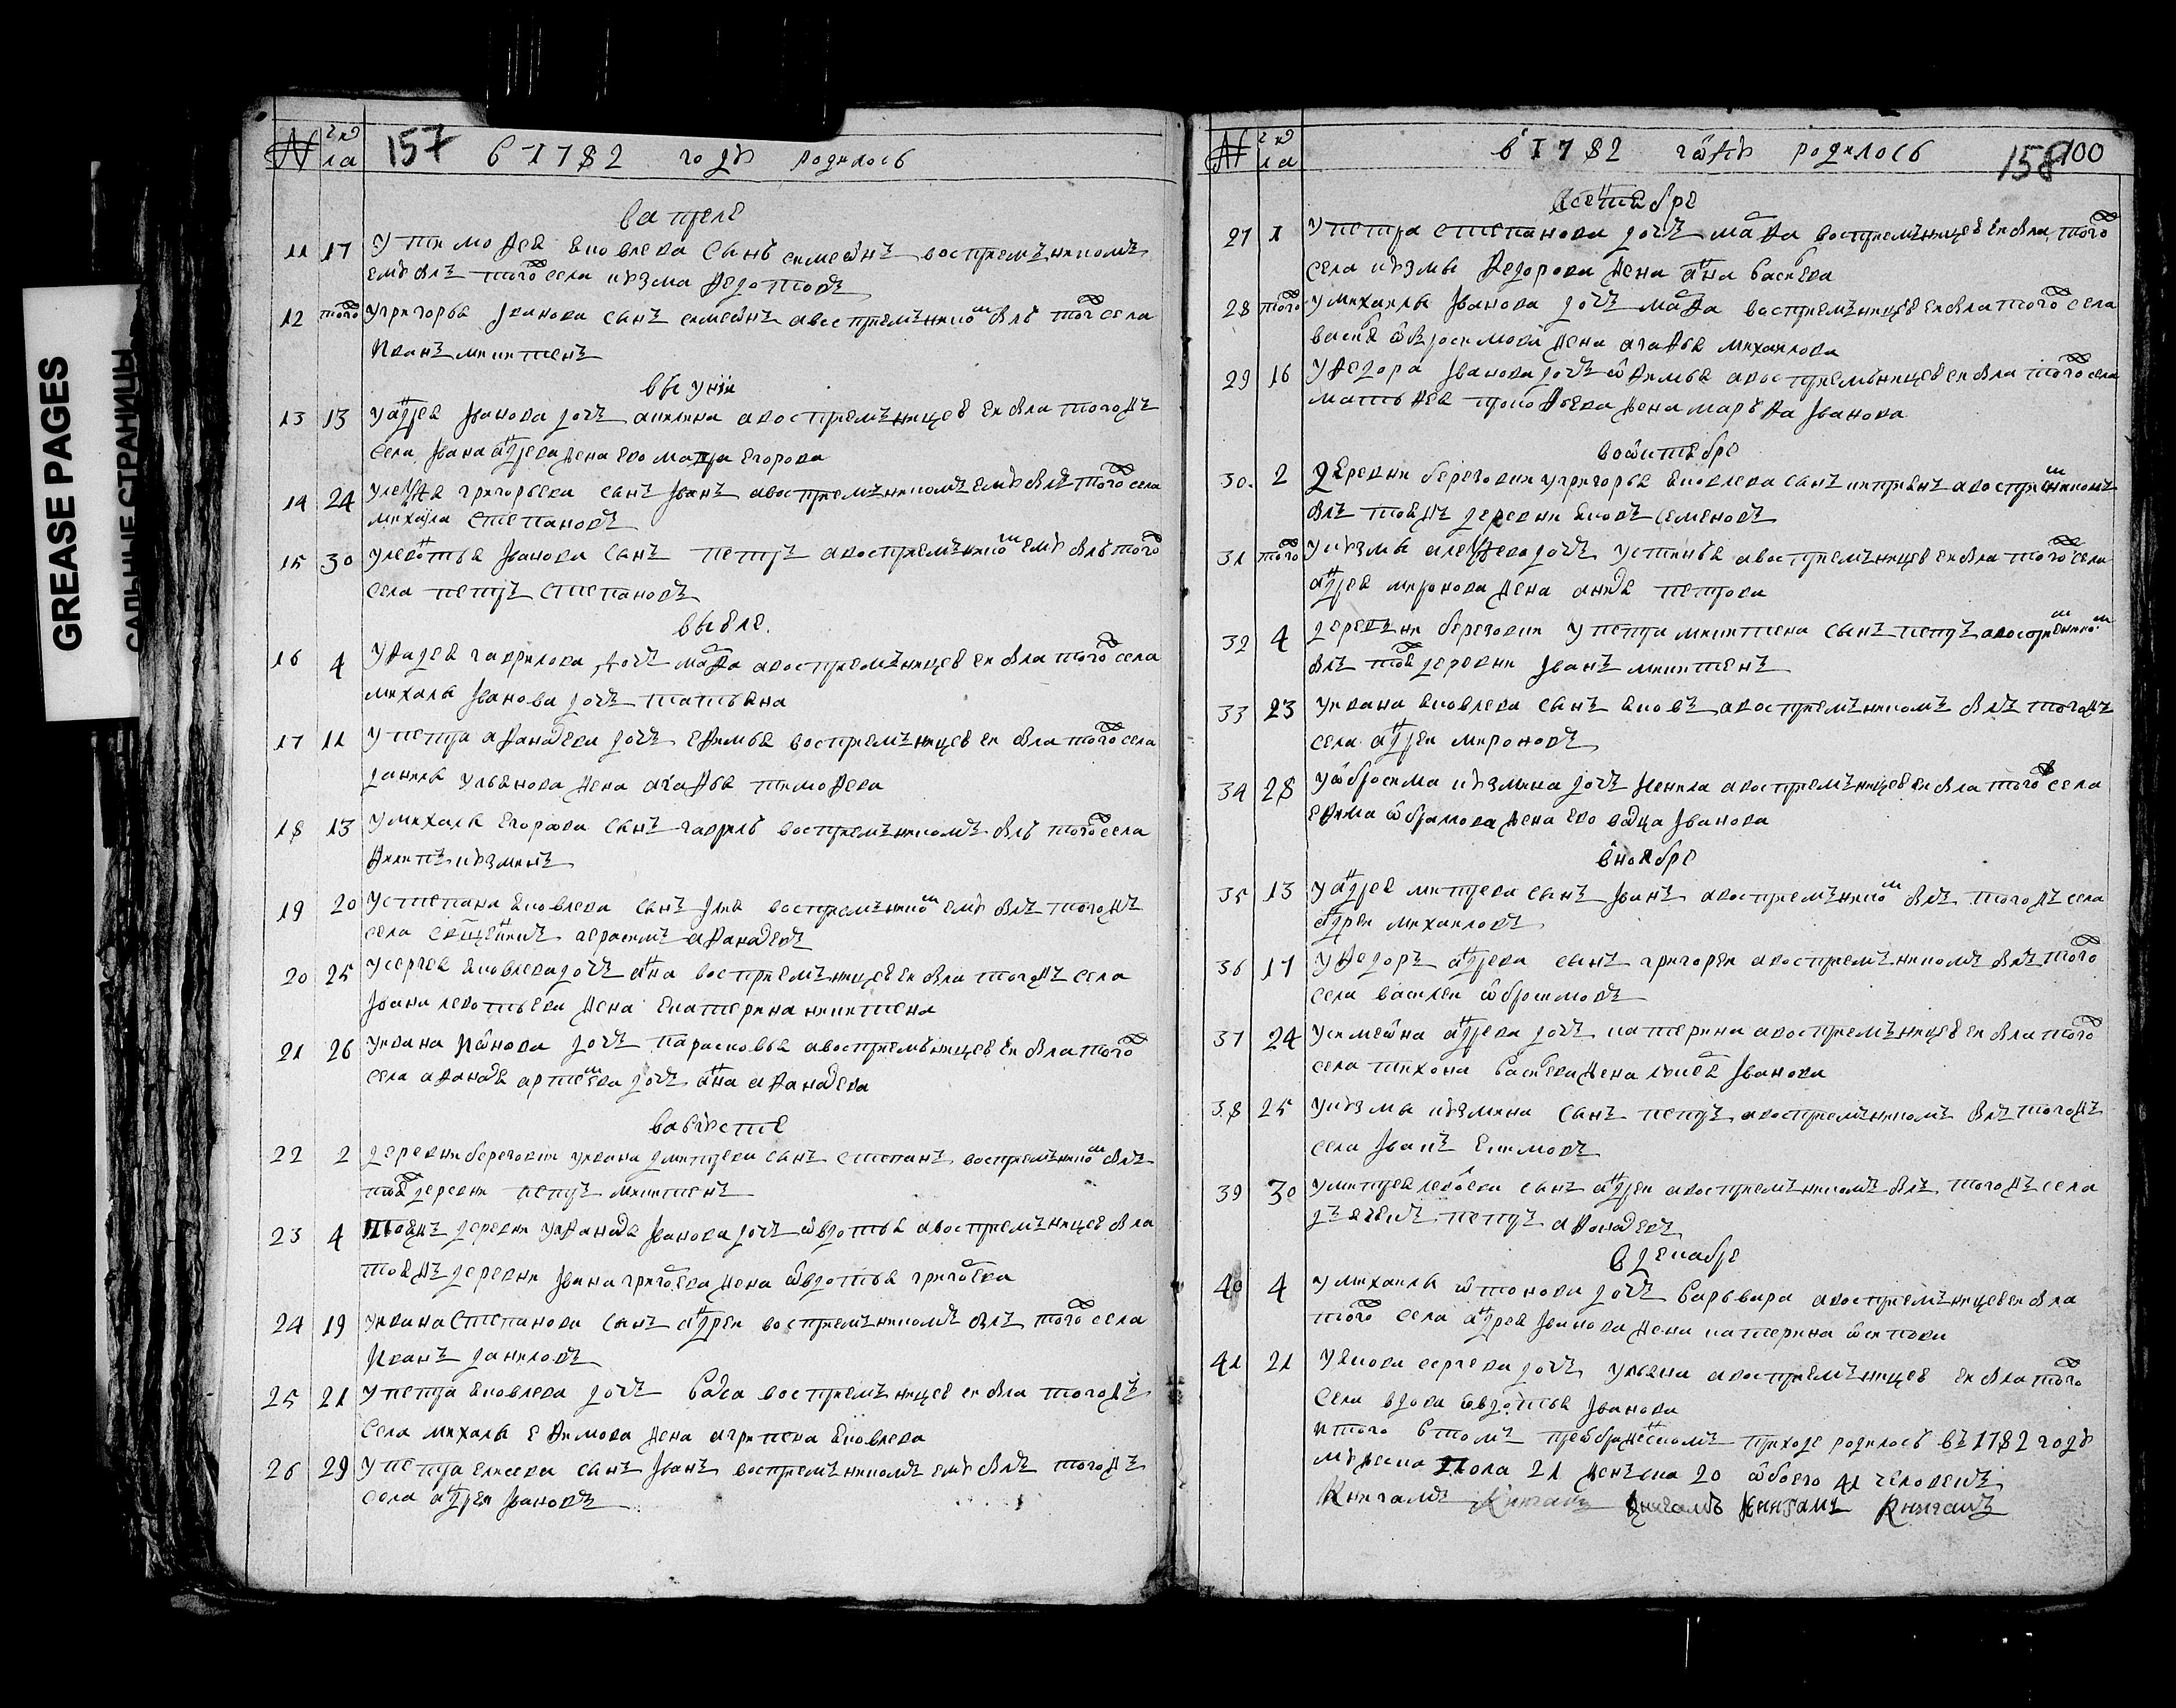 GREASE PAGES
САЛЬНЫЕ СТРАНИЦЫ
№ числа 157 в 1782 годѣ родилось
ва преле
11 17 у тимофея яковлева сынъ симеѡнъ воспремъникомъ
емѹ былъ того села кѹзма федотовъ
12 того у григорья Iванова сынъ симеѡнъ а воспремъникомъ былъ того села
Иванъ микитенъ
в ыунiи
13 13 у андрея Iванова дочь акилина а воспремъницею ей была тогожъ
села Iвана андреева жена ево марфа Егорова
14 24 у леѯѣя григорьева сынъ Iванъ а воспремъникомъ емѹ былъ того села
михаила степановъ
15 30 у леѡтья Iванова сынъ петръ а воспремъникомъ емѹ былъ того
села петръ степановъ
в ыюле.
16 4 у фадея гаврилова дочь марфа а воспремъницею ей была того села
михаилы Iванова дочь татьяна
17 11 у петра афанасева дочь ефимья воспремъницею ей была того села
данилы ульянова жена агафья тимофева
18 13 у михаилы Егорова сынъ гаврилъ воспремъникомъ былъ того села
филипъ кѹзминъ
19 20 у степана яковлева сынъ Iлия воспремъникомъ емѹ былъ тогожъ
села священикъ герасимъ афанасевъ
20 25 у сергея яковлева дочь анна воспремъницею ей была тогожъ села
Iвана левотьева жена Екатерина микитена
21 26 у ивана Иѡнова дочь парасковья а воспремъницею ей была того
села афанасья артемева дочь анна афанасева
в авгѹсте
22 2 деревни береговки у ивана дмитрева сынъ степанъ воспремъникомъ былъ
той деревни петръ микитенъ
23 4 тояжъ деревни у афанасья Iванова дочь ѡвдотья а воспремъницею была
тояжъ деревни Iвана григорева жена ѡвдотья григорева
24 19 у ивана степанова сынъ андреи воспремъникомъ былъ того села
Иванъ даниловъ
25 21 у петра яковлева дочь васса воспремъницею ей была тогожъ
села михаилы Ефимова жена агрипена яковлева
26 29 у петра елисева сынъ Iванъ воспремъникомъ емѹ былъ тогожъ
села андреи Iвановъ
№ числа в 1782 гѡдѹ родилось 158 100
в сентебре
27 1 у петра степанова дочь марфа воспремъницею ей была того
села кѹзмы федорова жена анна васильева
28 того у михаилы Iванова дочь марфа воспремъницею ей была того села
василья ѡбросимова жена агафья михаилова
29 16 у федора Iванова дочь ѡфимья а воспремъницею ей была того села
матьфея прокофьева жена марьфа Iванова
в оѡктебре
30. 2 деревни береговки у григорья яковлева сынъ киприянъ а воспремникомъ
былъ тояжъ деревни яковъ семеновъ
31 того у кѹзмы алеѯева дочь устинья а воспремъницею ей была того села
андрея миронова жена анисья петрова
32 4 деревъни береговки у петра микитена сынъ петръ а воспремъникомъ
былъ тоя деревни Iванъ микитенъ
33 23 у ивана яковлева сынъ яковъ а воспремъникомъ былъ тогожъ
села андреи мироновъ
34 28 у ѡбросима кѹзмина дочь ненила а воспремъницею ей была того села
ефима ѡбрамова жена ево Iванова
в ноябре
35 13 у андрея митрева сынъ Iванъ а воспремъникомъ былъ тогожъ села
андреи михаиловъ
36 17 у федоръ андреева сынъ григореи а воспремъникомъ былъ того
села василеи ѡбросимовъ
37 24 у симеѡна андреева дочь катерина а воспремъницею ей была того
села тихона васильева жена Iванова
38 25 у кѹзмы кѹзмина сынъ петръ а воспремъникомъ былъ тогожъ
села Iванъ Екимовъ
39 30 у митрея сынъ андреи а воспремъникомъ былъ тогожъ села
дъячекъ петръ афонасевъ
в декабре
40 4 у михаилы ѡтонова дочь варьвара а воспремъницею ей была
того села андрея Iванова жена катерина ѡсипова
41 21 у якова сергева дочь ульяна а воспремъницею ей была того
села вдова ѡвдотья Iванова
итого в томъ преѡбраженскомъ приходе родилось въ 1782 годѹ
мѹжеска пола 21 женъска 20 ѡбоего 41 человекъ
Книгамъ Книгамъ Книгамъ Книгамъ Книгамъ